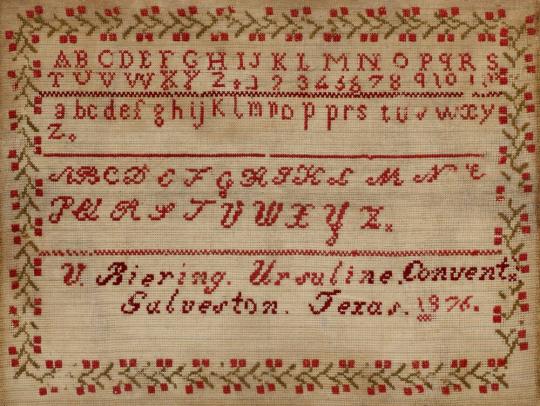 ABCDEFGHIJKLMNOPQRS
TUVWXYZ. 1 2 3 4 5 6 7 8 9 10 11
abcdefghijklmnopprstuvwxy
z.
ABCDEFGHIKLMN
PQRSTUVWXYZ.
V. Biering. Ursuline. Convent.
Galveston. Texas. 1876.